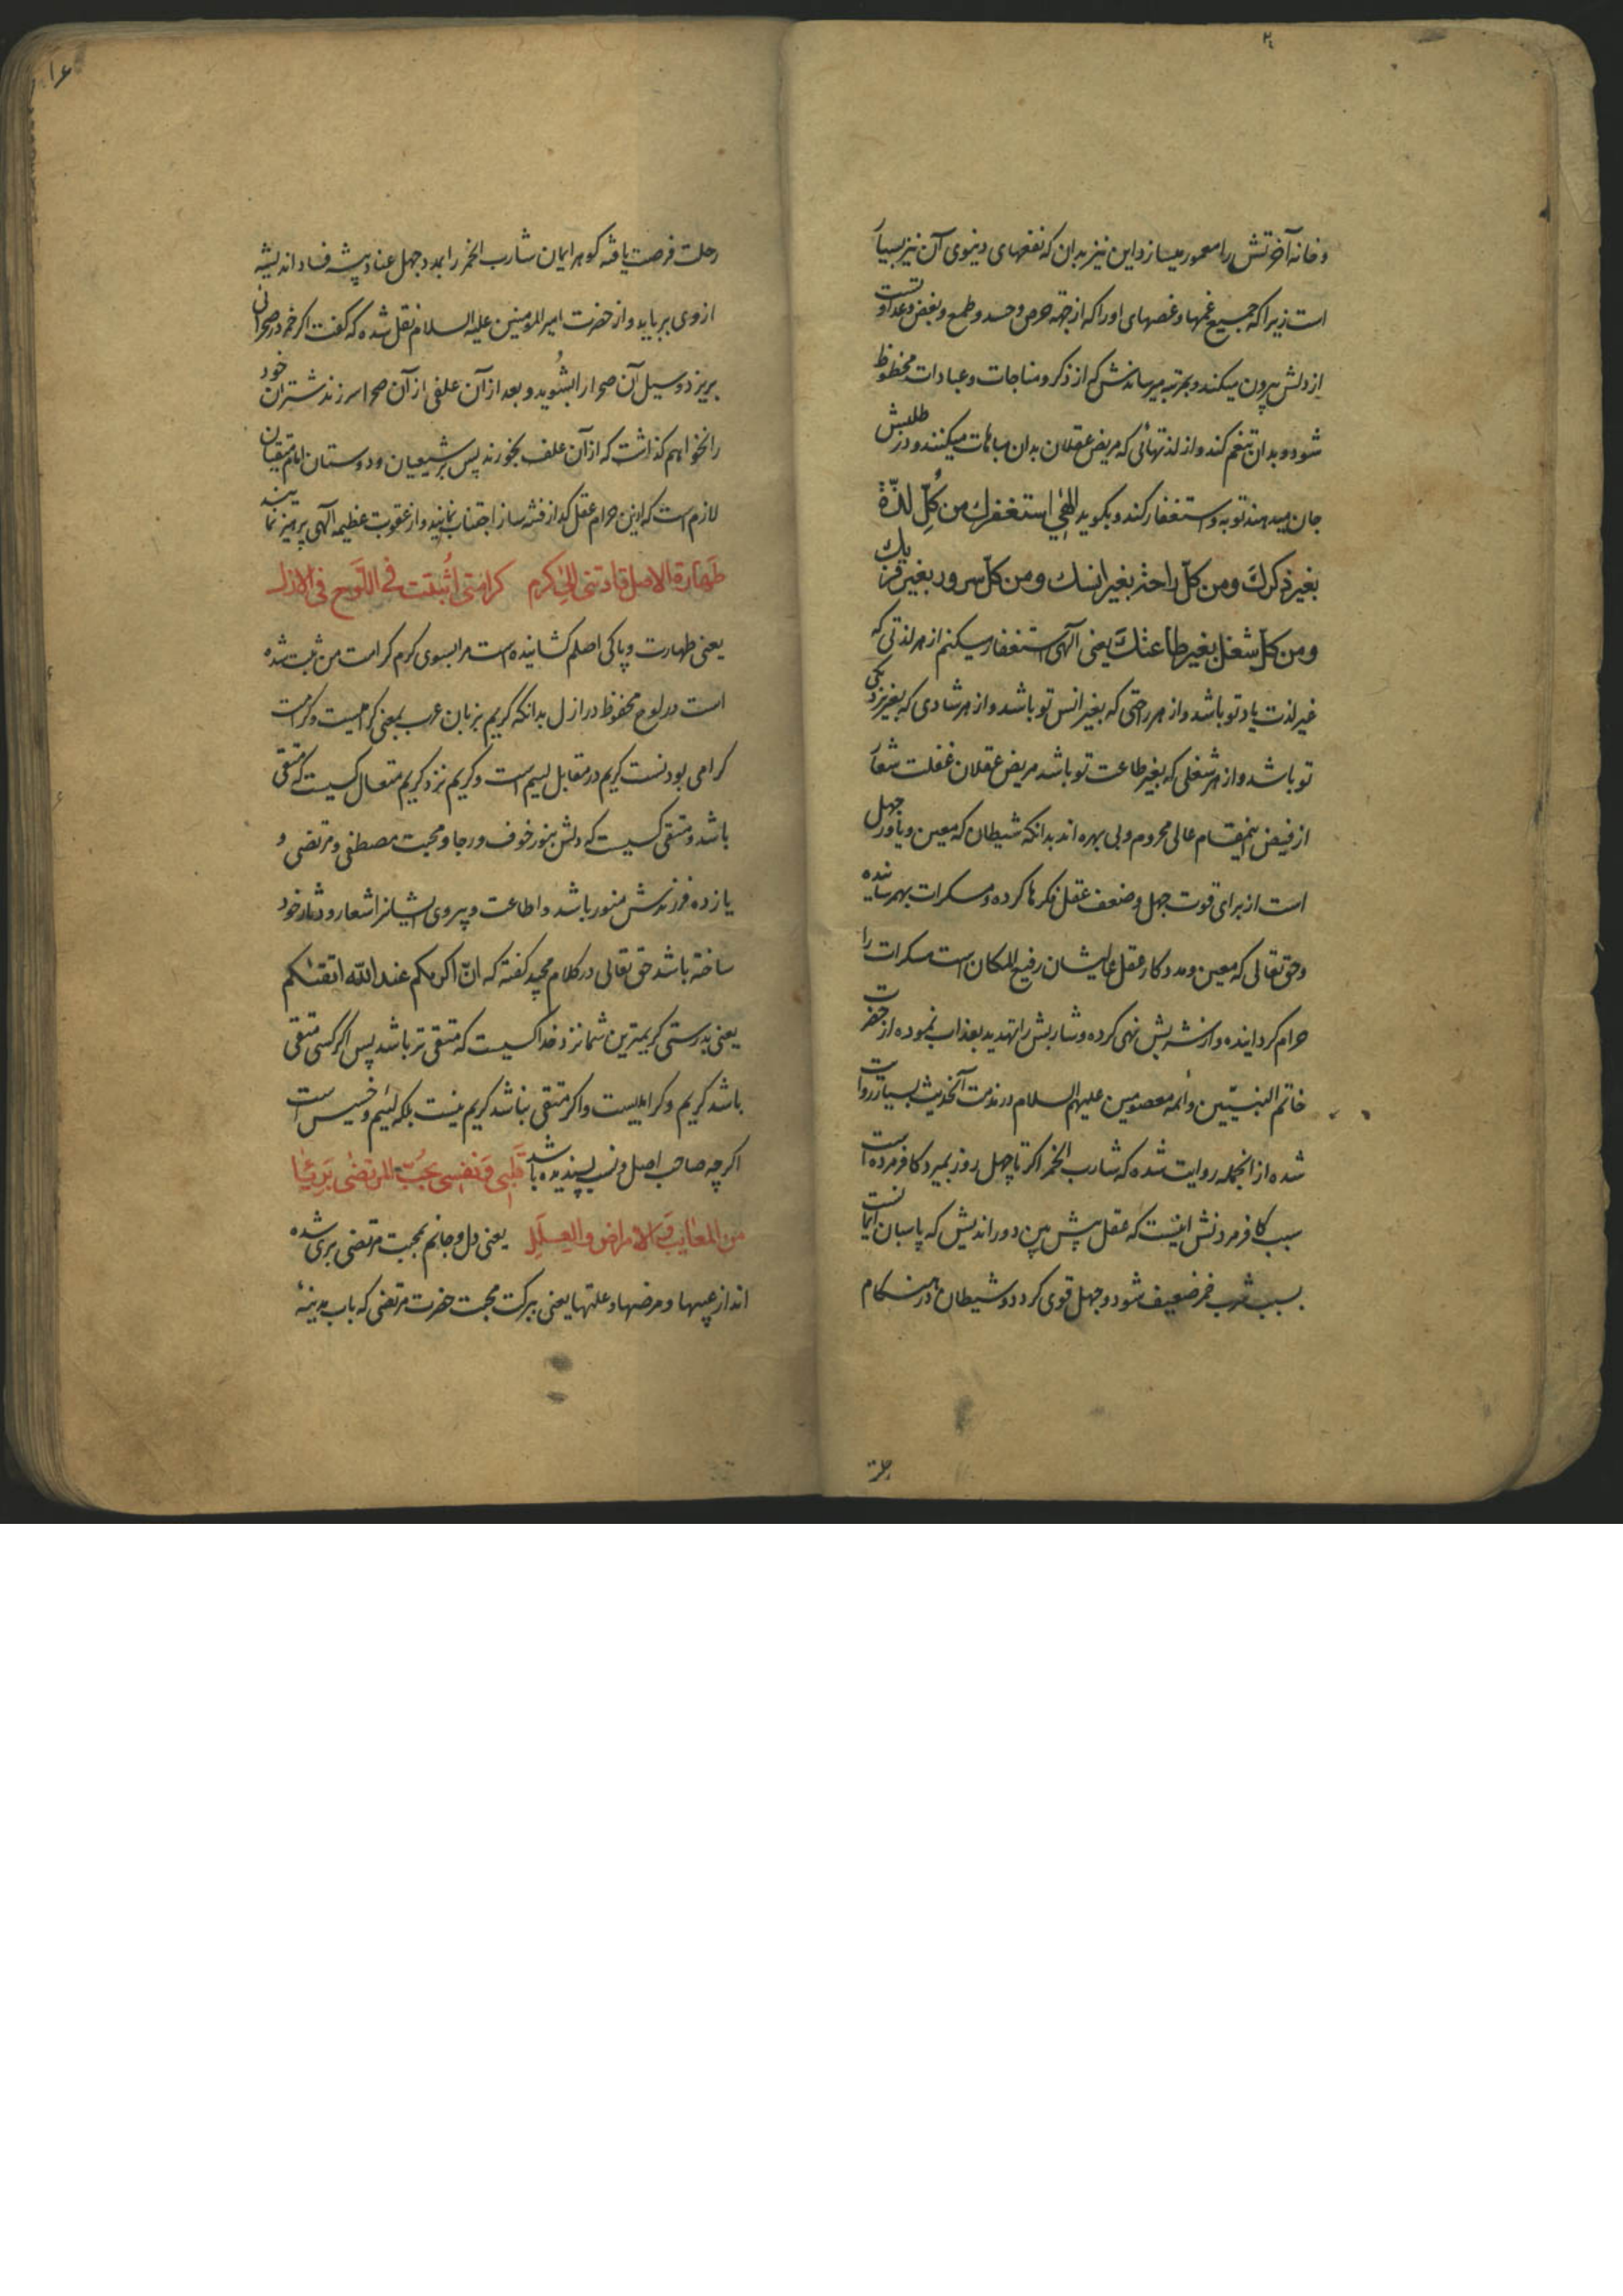 و خانه آخرتش را معمور میسازد این نیز بدان که نفعهای دینوی آن نیز بسیار
است زیرا که جمیع غمها و غصهای او را که از جهة حرص و حسد و طمع و بغض و عداوتست
از دلش بیرون میکند و بمرتبه میرساندش که از ذکر و مناجات و عبادات محظوظ
شود و بدان تنعم کند و از لذتهائی که مریض عقلان بدان مباهات میکنند و در طلبش
جان میدهند توبه و استغفار کند و بگوید الٰهی استغفرك من كُلِّ لذّة
بغیر ذکرك ومن کلّ راحة بغیر انسك ومن کلّ سرور بغیر قربك
ومن کلّ شغل بغیر طاعتك یعنی آلهی استغفار میکنم از هر لذتی که
غیر لذت یاد تو باشد و از هر راحتی که بغیر انس تو باشد و از هر شادی که بغیر نزدیکی
تو باشد و از هر شغلی که بغیر طاعت تو باشد مریض عقلان غفلت شعار
از فیض اینمقام عالی محروم و بی بهره اند بدانکه شیطان که معین و یاور جهل
است از برای قوت جهل و ضعف عقل فکرها کرده و مسکرات بهم رسانیده
و حق تعالی که معین و مددکار عقل عالیشان رفیع المکان است مسکرات را
حرام کردانیده و از شربش نهی کرده و شاربش را تهدید بعذاب نموده از حضرت
خاتم النبیّین و ائمه معصومین علیهم السلام در مذمت آن احدیث بسیار روایت
شده از انجمله روایت شده که شارب الخمر اکر تا چهل روز بمیرد کافر مرده است
سبب کافر مردنش اینست که عقل پیش بین دور اندیش که پاسبان ایمانست
بسبب شرب خمر ضعیف شود و جهل قوی کردد و شیطان در هنکام
رحلت فرصت یافته کوهر ایمان شارب الخمر را بمدد جهل عناد پیشه فساد اندیشه
از وی برباید و از حضرت امیر المومنین علیه السلام نقل شده که کفت اکر خم در صحرائی
بریزد و سیل آن صحرا را بشُوید و بعد از آن علفی از آن صحرا سر زند شتران خود
را نخواهم کذاشت که از آن علف بخورند پس بر شیعیان و دوستان امام متقیان
لازم است که ازین حرام عقل کداز فتنه ساز اجتناب نمایند و از عقوبت عظیمه آلهی پرهیز نمایند
طَهٰارَة الاصل قادتنی الیٰ کرم کرامتی اُثبتت فی اللّوح فی الازل
یعنی طهارت و پاکی اصلم کشاننده است مرا بسوی کرم کرامت من ثبت شده
است در لوح محفوظ در ازل بدانکه کریم بزبان عرب بمعنی کرامیست و کرامت
کرامی بودنست کریم در مقابل لئیم است و کریم نزد کریم متعال کسیست که متقی
باشد و متقی کسیست که دلش بنور خوف و رجا و محبت مصطفی و مرتضی و
یازده فرزندش منور باشد و اطاعت و پیروی ایشانرا شعار و دثار خود
ساخته باشد حق تعالی در کلام مجید کفته که انّ اکرمکم عند اللّه اتقٰیکم
یعنی بدرستی کریمترین شما نزد خدا کسیست که متقی تر باشد پس اکر کسی متقی
باشد کریم و کرامیست و اکر متقی نباشد کریم نیست بلکه لئیم و خسیس است
اکرچه صاحب اصل و نسب پسندیده باشد قَلبی وَ نَفسی بحُبّ المرتضٰی بَرِئٰا
من المعٰایب وَ الامراض و العِلَلِ یعنی دل و جانم بمحبت مرتضی بری شده
اند از عیبها و مرضها و علتها یعنی ببرکت محبت حضرت مرتضی که باب مدینهٔ